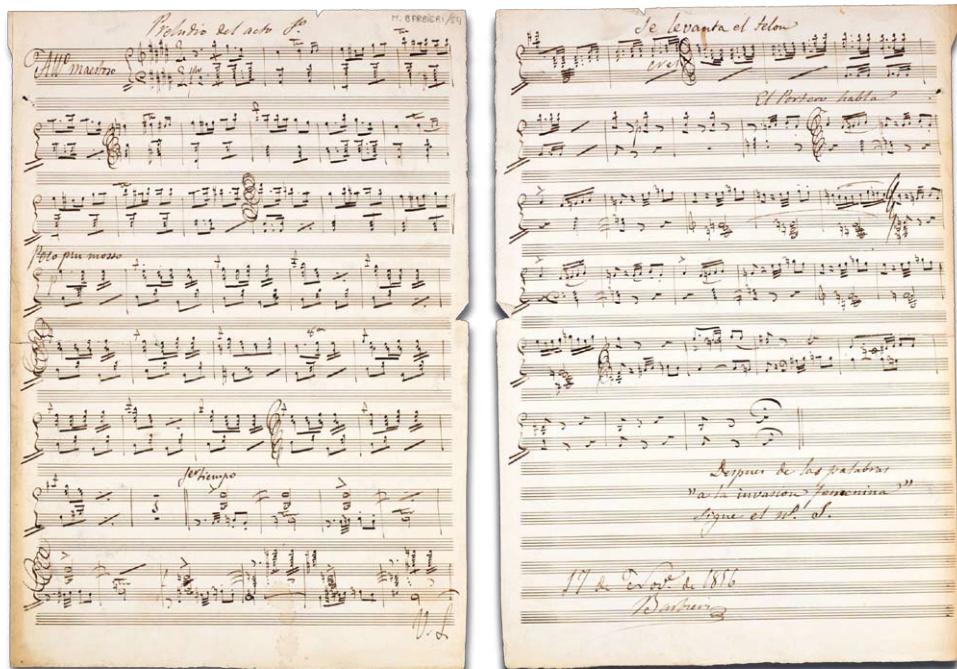 Preludio del acto 1º
M. BARBIERI/54
All.º maestoso
Poco piu mosso
1er tiempo
V. S.
Se levanta el telon
cres
El Portero habla
Despues de las palabras
"a la invasion femenina"
sigue el nº 1.
17 de Nov.e de 1856
Barbieri